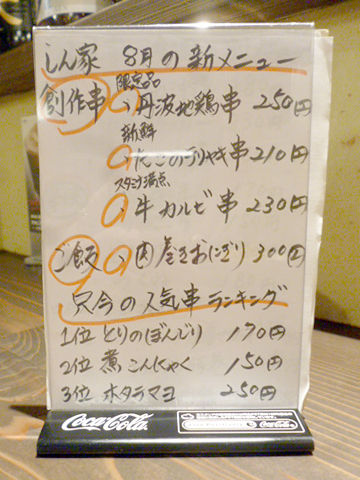 しん家 8月の新メニュー
限定品
創作串 丹波地鶏串 250円
新鮮
たこのテリヤキ串 210円
スタミナ満点
牛カルビ串 230円
ご飯 肉巻きおにぎり 300円
只今の人気串ランキング
1位 とりのぼんじり 170円
2位 煮こんにゃく 150円
3位 ホタテマヨ 250円
Coca-Cola
Coca-Cola